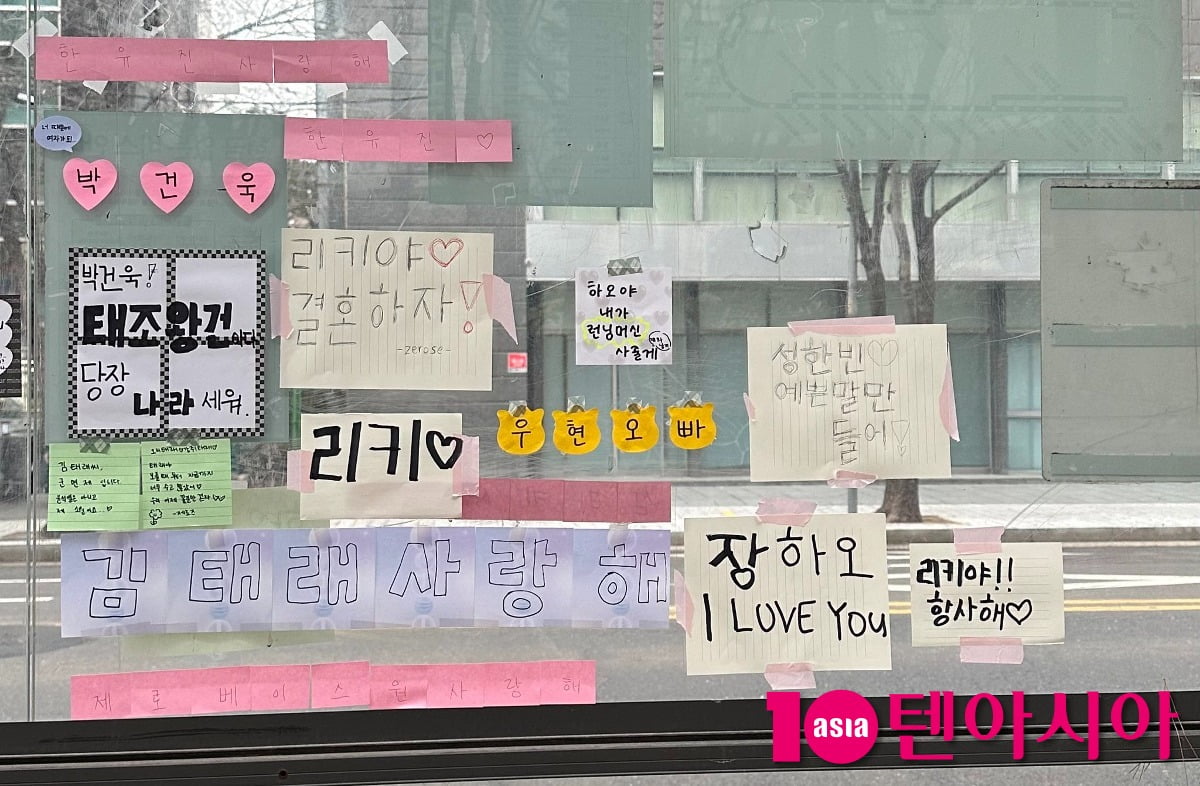 한유진사랑해
한유진♡
너 때문에
여자가 되
박건욱
박건욱!
태조왕건이다
당장
나라 세워.
리키야♡
결혼하자!
-zerose-
하오야
내가
런닝머신
사줄게
성한빈♡
예쁜말만
들어♡
우현오빠
리키♡
김태래씨,
군면제 입니다.
태래야
-제로즈
김태래사랑해
장하오
I LOVE YOU
리키야!!
항상해♡
제로베이스원사랑해
10asia 텐아시아